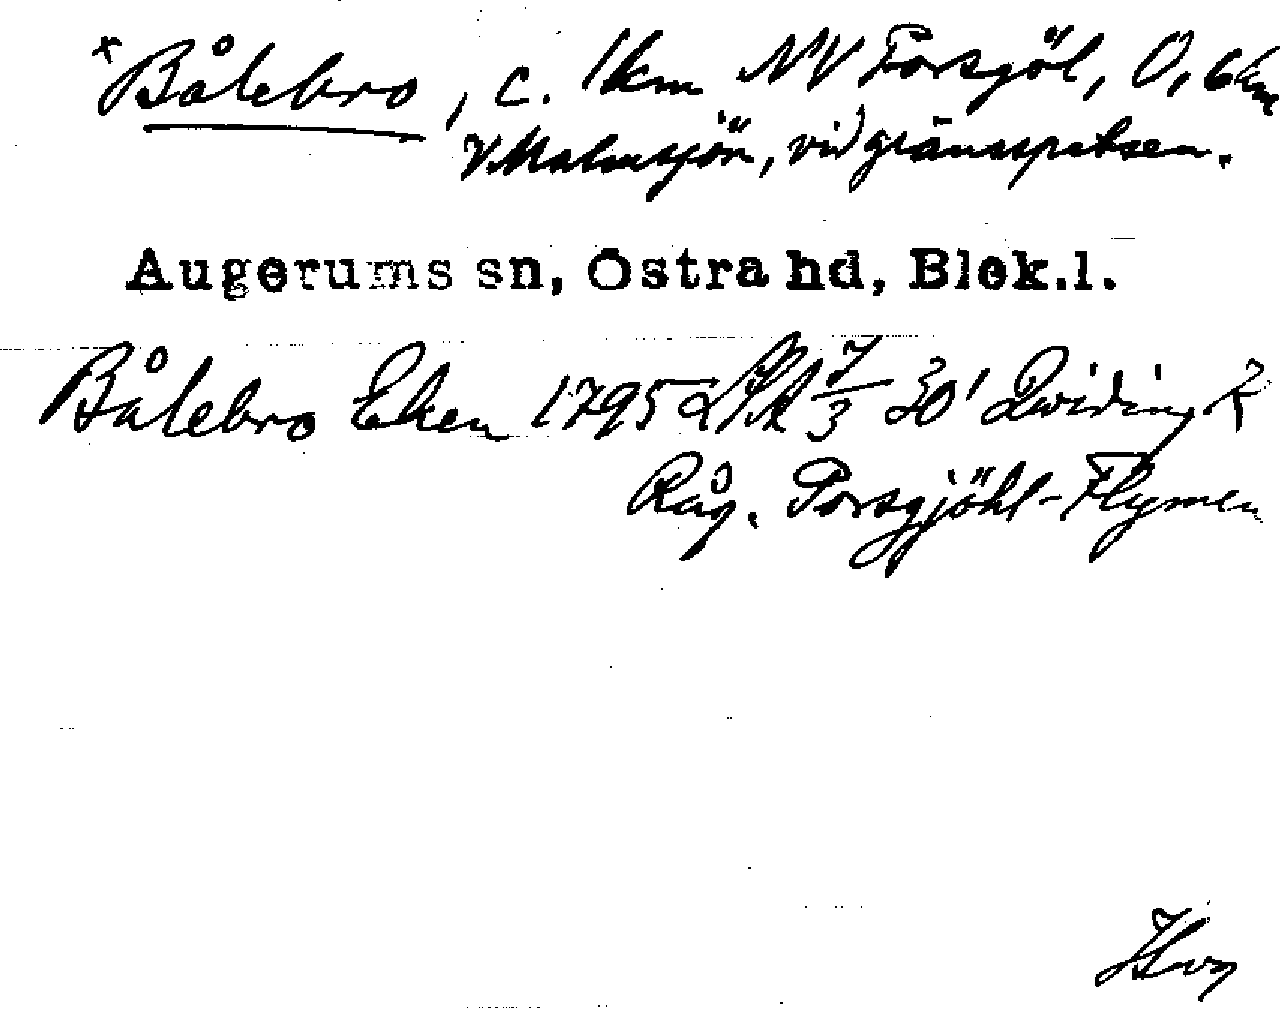 *Bålebro, c. 1 km NV Porsgöl, 0,6 km
V. Malmsjön, vid gränsspetsen.
Augerums sn, Östra hd, Blek.l.
Bålebro Eken 1795 7/3 30' Qviding
Råg. Porsgjöhl-Flymen